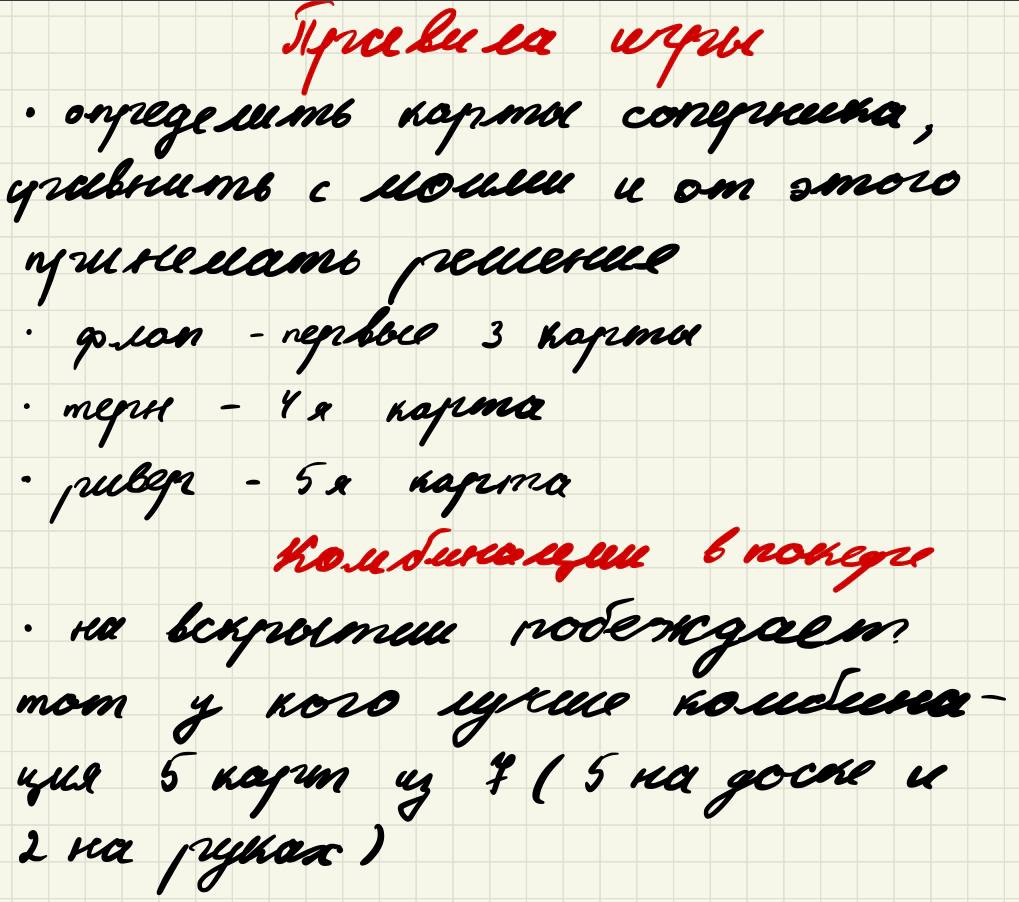 Правила игры
· определить карты соперника,
сравнить с моими и от этого
принемать решение
· флоп - первые 3 карты
· терн - 4я карта
· ривер - 5я карта
Комбинации в покере
· на вскрытии побеждает
тот у кого лучше комбина-
ция 5 карт из 7 (5 на доске и
2 на руках)